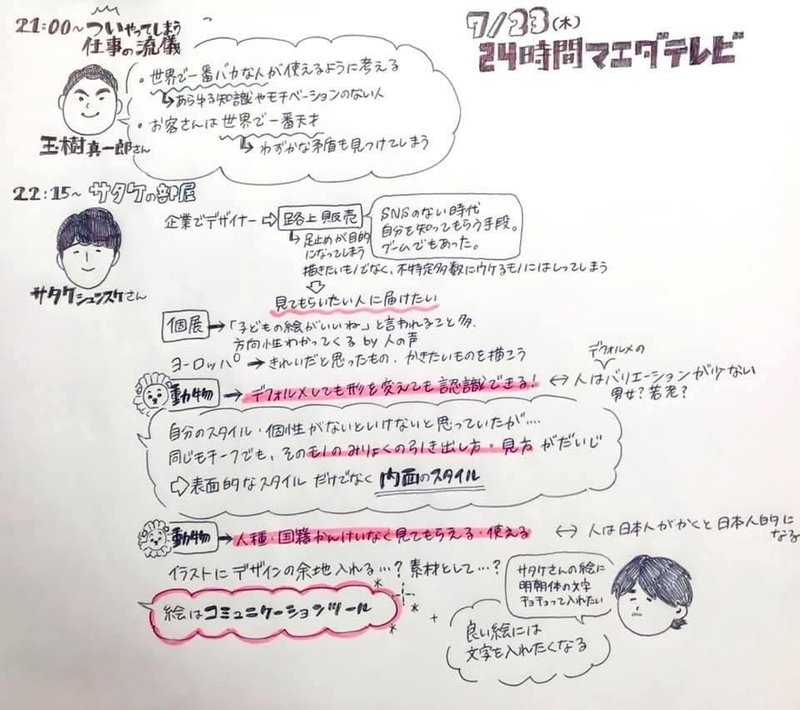 7/23(木)
24時間マエダテレビ
21:00~ ついやってしまう
仕事の流儀
玉樹真一郎さん
・世界で一番バカな人が使えるように考える
↳あらゆる知識やモチベーションのない人
・お客さんは世界で一番天才
↳わずかな矛盾も見つけてしまう
22:15~ サタケの部屋
サタケシュンスケさん
企業でデザイナー ⇨ 路上販売
SNSのない時代
自分を知ってもらう手段。
ブームでもあった。
↳足止めが目的
になってしまう
描きたいモノでなく、不特定多数にウケるモノにはしってしまう
⇩
見てもらいたい人に届けたい
個展 → 「子どもの絵がいいね」と言われること多.
方向性わかってくる by 人の声
ヨーロッパ → きれいだと思ったもの・かきたいものを描こう
動物 → デフォルメしても形を変えても認識できる! ↔ 人はバリエーションが少ない
デフォルメの
男女?若老?
自分のスタイル・個性がないといけないと思っていたが....
同じモチーフでも、そのモノのみりょくの引き出し方・見方がだいじ
⇨表面的なスタイルだけでなく内面のスタイル
動物 → 人種・国籍かんけいなく見てもらえる・使える ↔ 人は日本人がかくと日本人的に
なる
イラストにデザインの余地入れる…? 素材として…?
絵はコミュニケーションツール
+
サタケさんの絵に
明朝体の文字
チョチョって入れたい
良い絵には
文字を入れたくなる